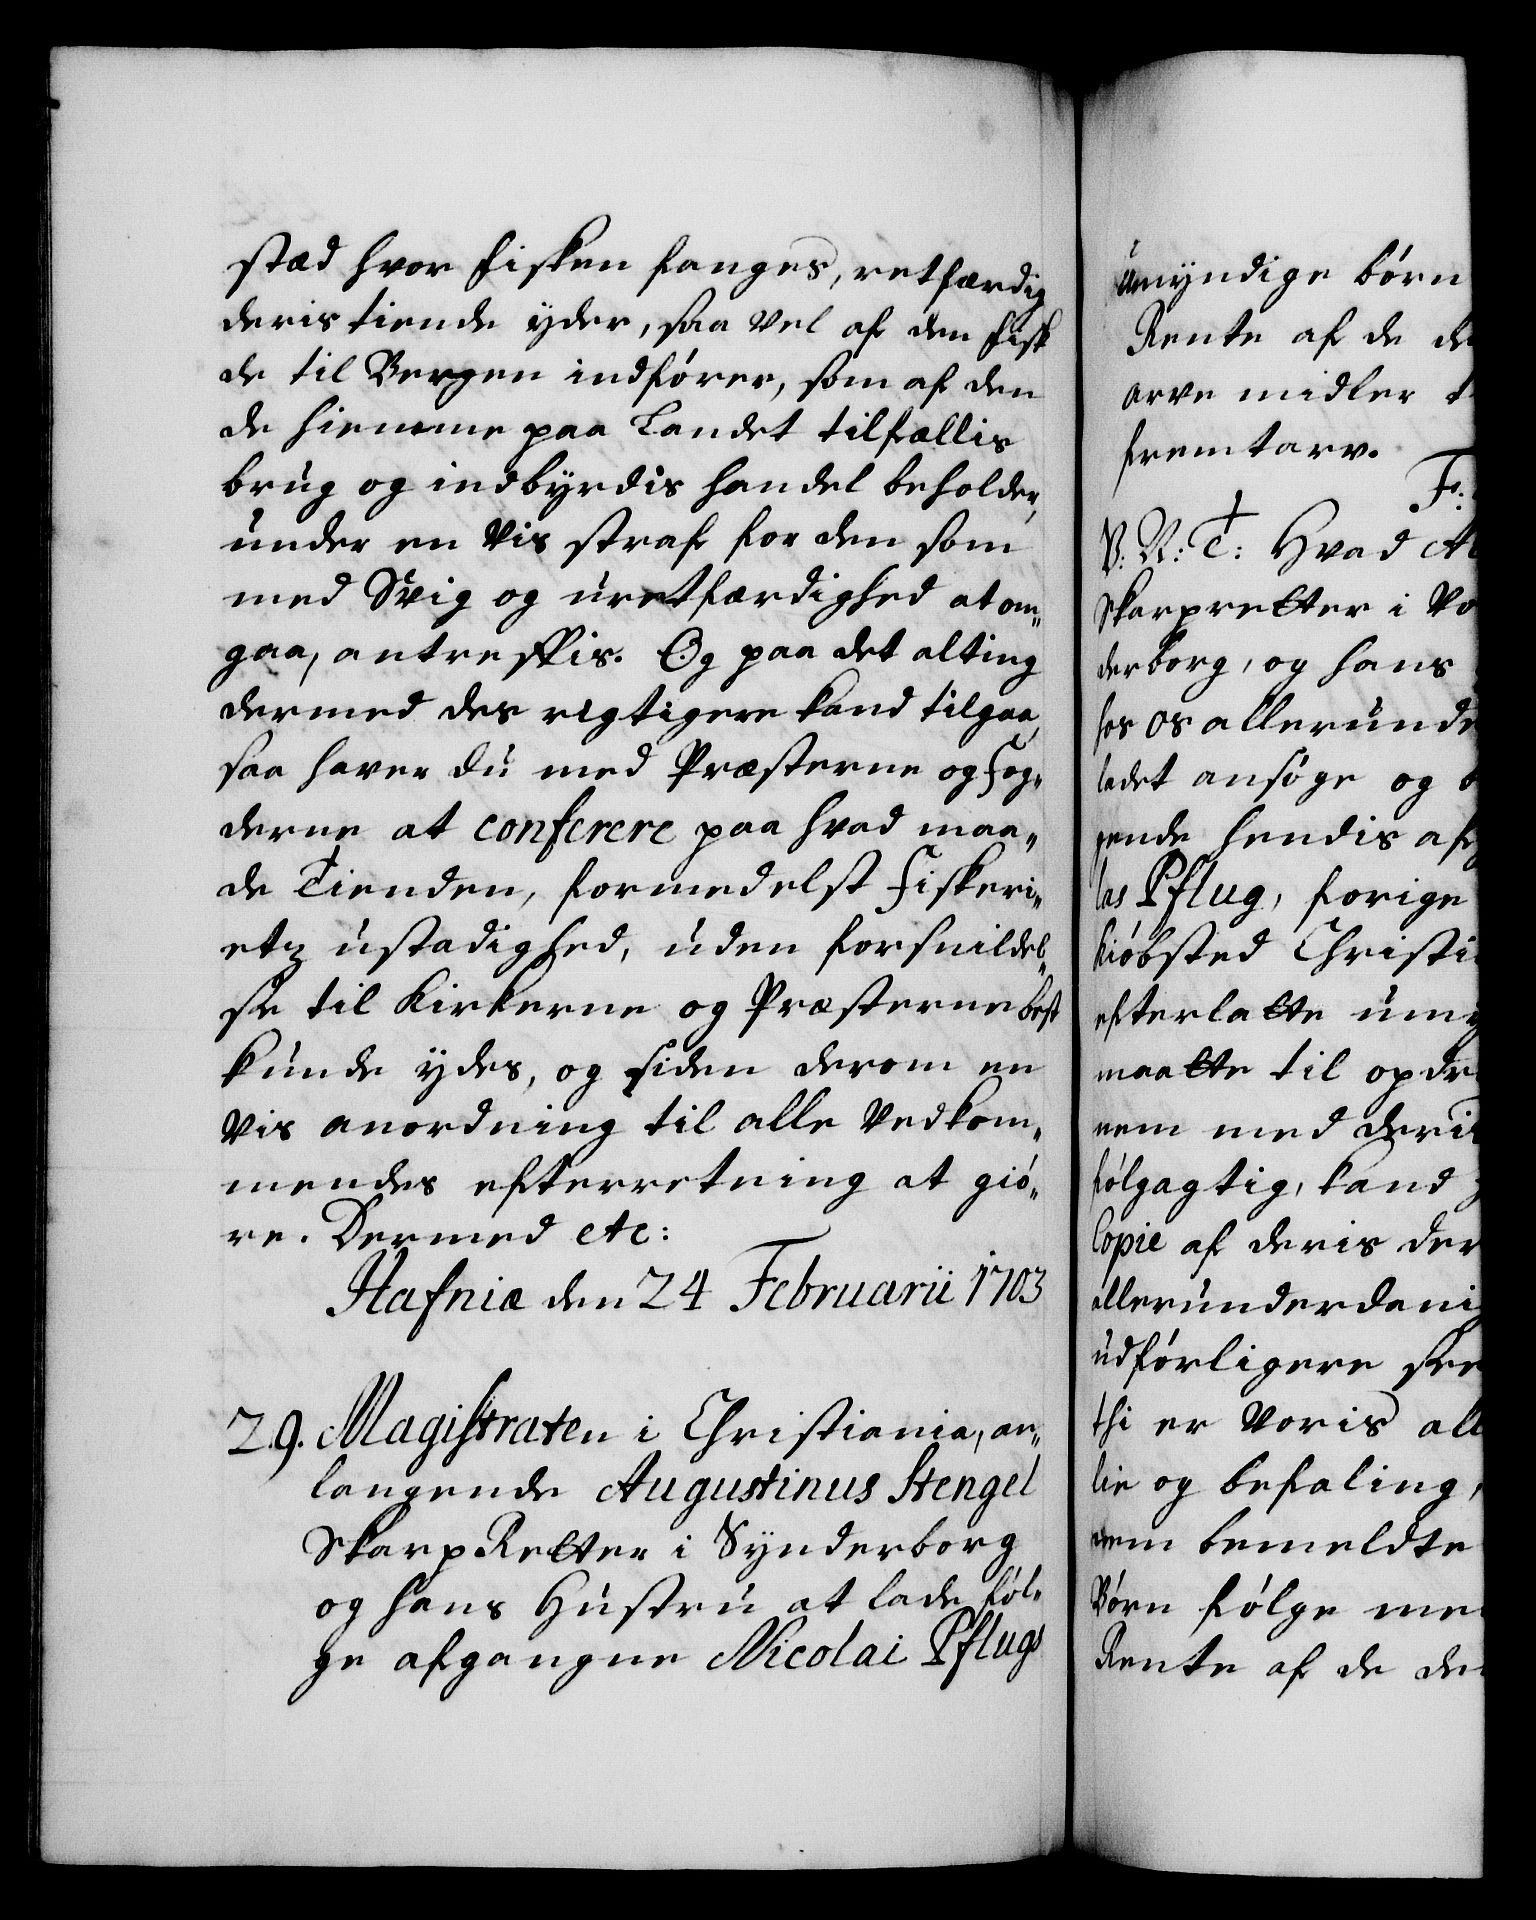 stæd hvor fisken fanges, retfærdig
deris tiende yder, saa vel af den fisk
de til Bergen indfører, som af den
de hiemme paa Landet til fællis
brug og indbyrdis handel beholder,
under en vis straf for den som
med Svig og uretfærdighed at om„
gaa, antreffis. Og paa det alting
dermed des rigtigere kand tilgaa,
saa haver du med Præsterne og Fog„
derne at conferere paa hvad maa„
de Tienden, formedelst Fiskeri„
etz ustadighed, uden forsnildel„
se til Kirkerne og Præsterne best
kunde ydes, og siden derom en
vis anordning til alle Vedkom„
mendes efterretning at giö„
re. Dermed etc:
Hafniæ den 24 Februarii 1703
29. Magistraten i Christiania, an„
langende Augustinus Stengel
SkarpRetter i Synderborg
og hans Hustru at lade föl„
ge afgangne Nicolai Pflugs
umyndige börn
Rente af de de
arve midler t
fremtarv.
Fr:
V. N: T: Hvad A
Skarpretter i
derborg, og hans
hos os allerunde
ladet ansöge og b
gende hendis af
las Pflug, forige
kiöbsted Christi
efterlatte umy
maatte til opdr
nem med deris
fölgagtig, kand
Copie af deris der
allerunderdani
udförligere see
thi er Voris all
lie og befaling,
nem bemeldte
Börn fölge me
Rente af de de